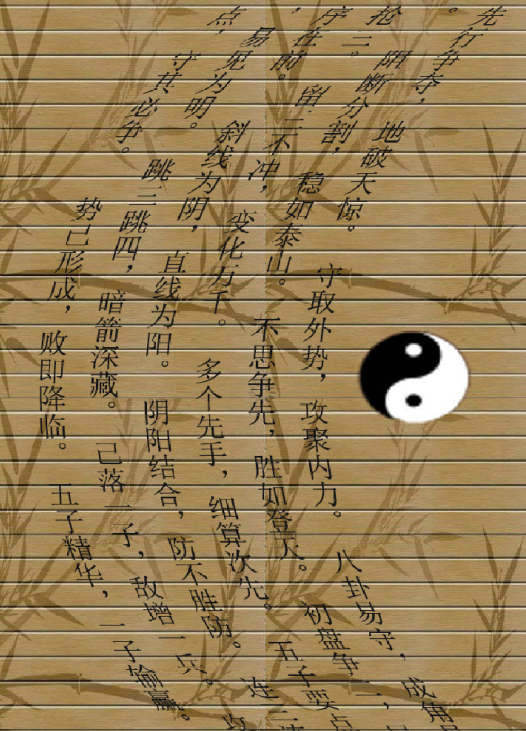 先行争夺，
地破天惊。
守取外势，攻聚内力。
八卦易守，成角
抢三。
阻断分割，稳如泰山。
不思争先，胜如登天。
初盘争二，
序在前。
留三不冲，变化万千。
多个先手，细算次先。
五子要点
易见为明。
斜线为阴，直线为阳。
阴阳结合，防不胜防。
连三
点，
守其必争。
跳三跳四，暗箭深藏。
己落一子，敌增一兵。
势已形成，败即降临。
五子精华，一子输赢。